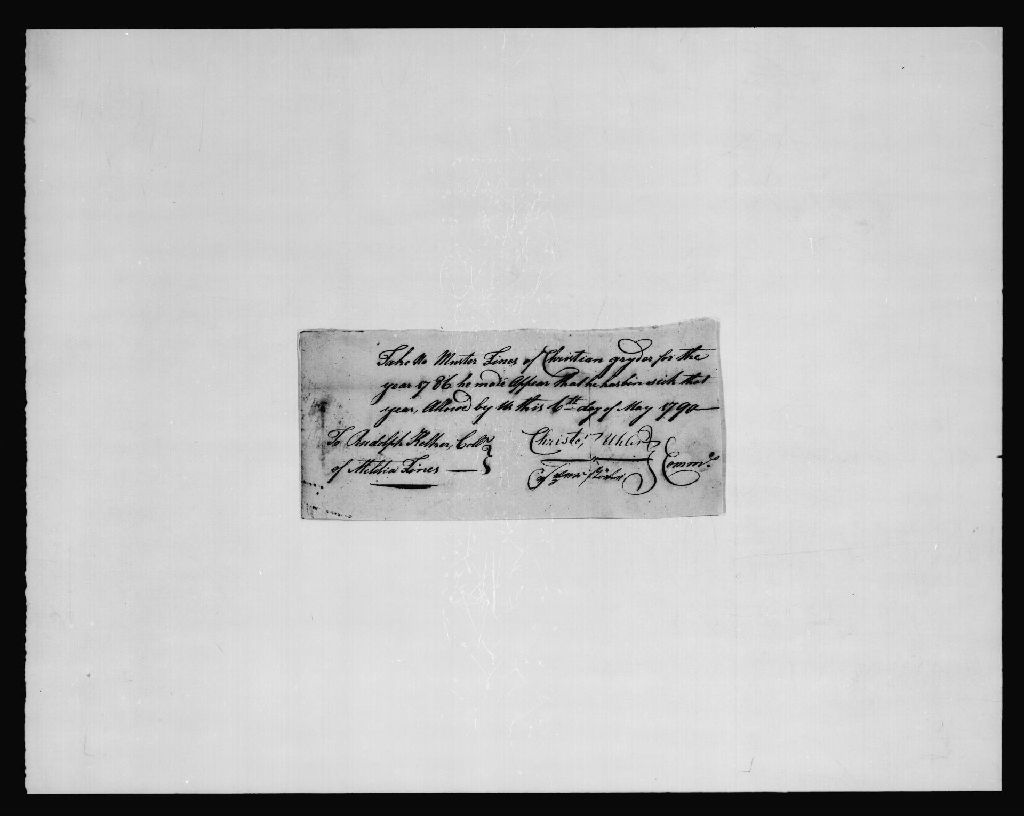 Take No Muster Fines of Christian gryder for the
year 1786 he made Appear that he has bin sick that
year, Allowed by Us this 6th day of May 1790
To Rudolph Kelker, Collr
of Militia Fines
Christor Uhler
Commrs